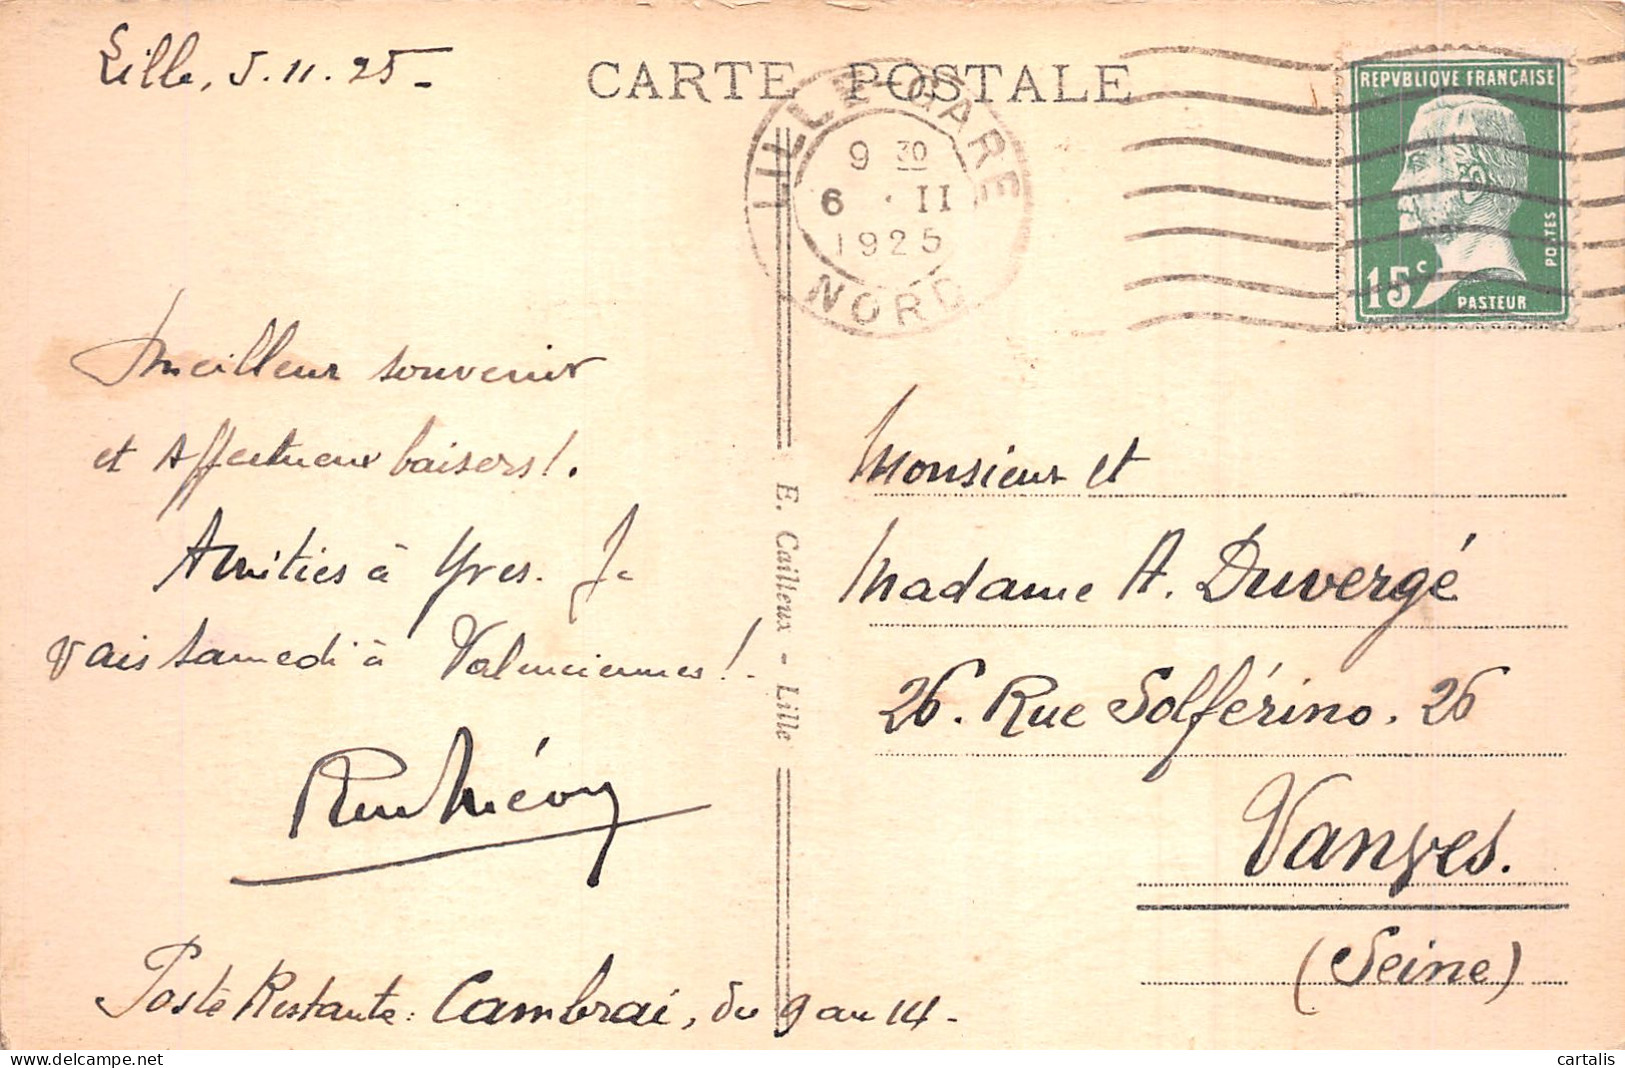 Lille, 5.11.25-
CARTE POSTALE
LILLE-GARE
9 30
6 · II
1925
NORD
REPVBLIQVE FRANÇAISE
POSTES
15c
PASTEUR
Meilleur souvenir
et affectueux baisers!.
Amitiés à Yves. Je
vais samedi à Valenciennes!.
Poste Restante: Cambrai, du 9 au 14-
E. Cailleux - Lille
Monsieur et
Madame A. Duvergé
26. Rue Solférino. 26
Vanves.
(Seine)
cartalis